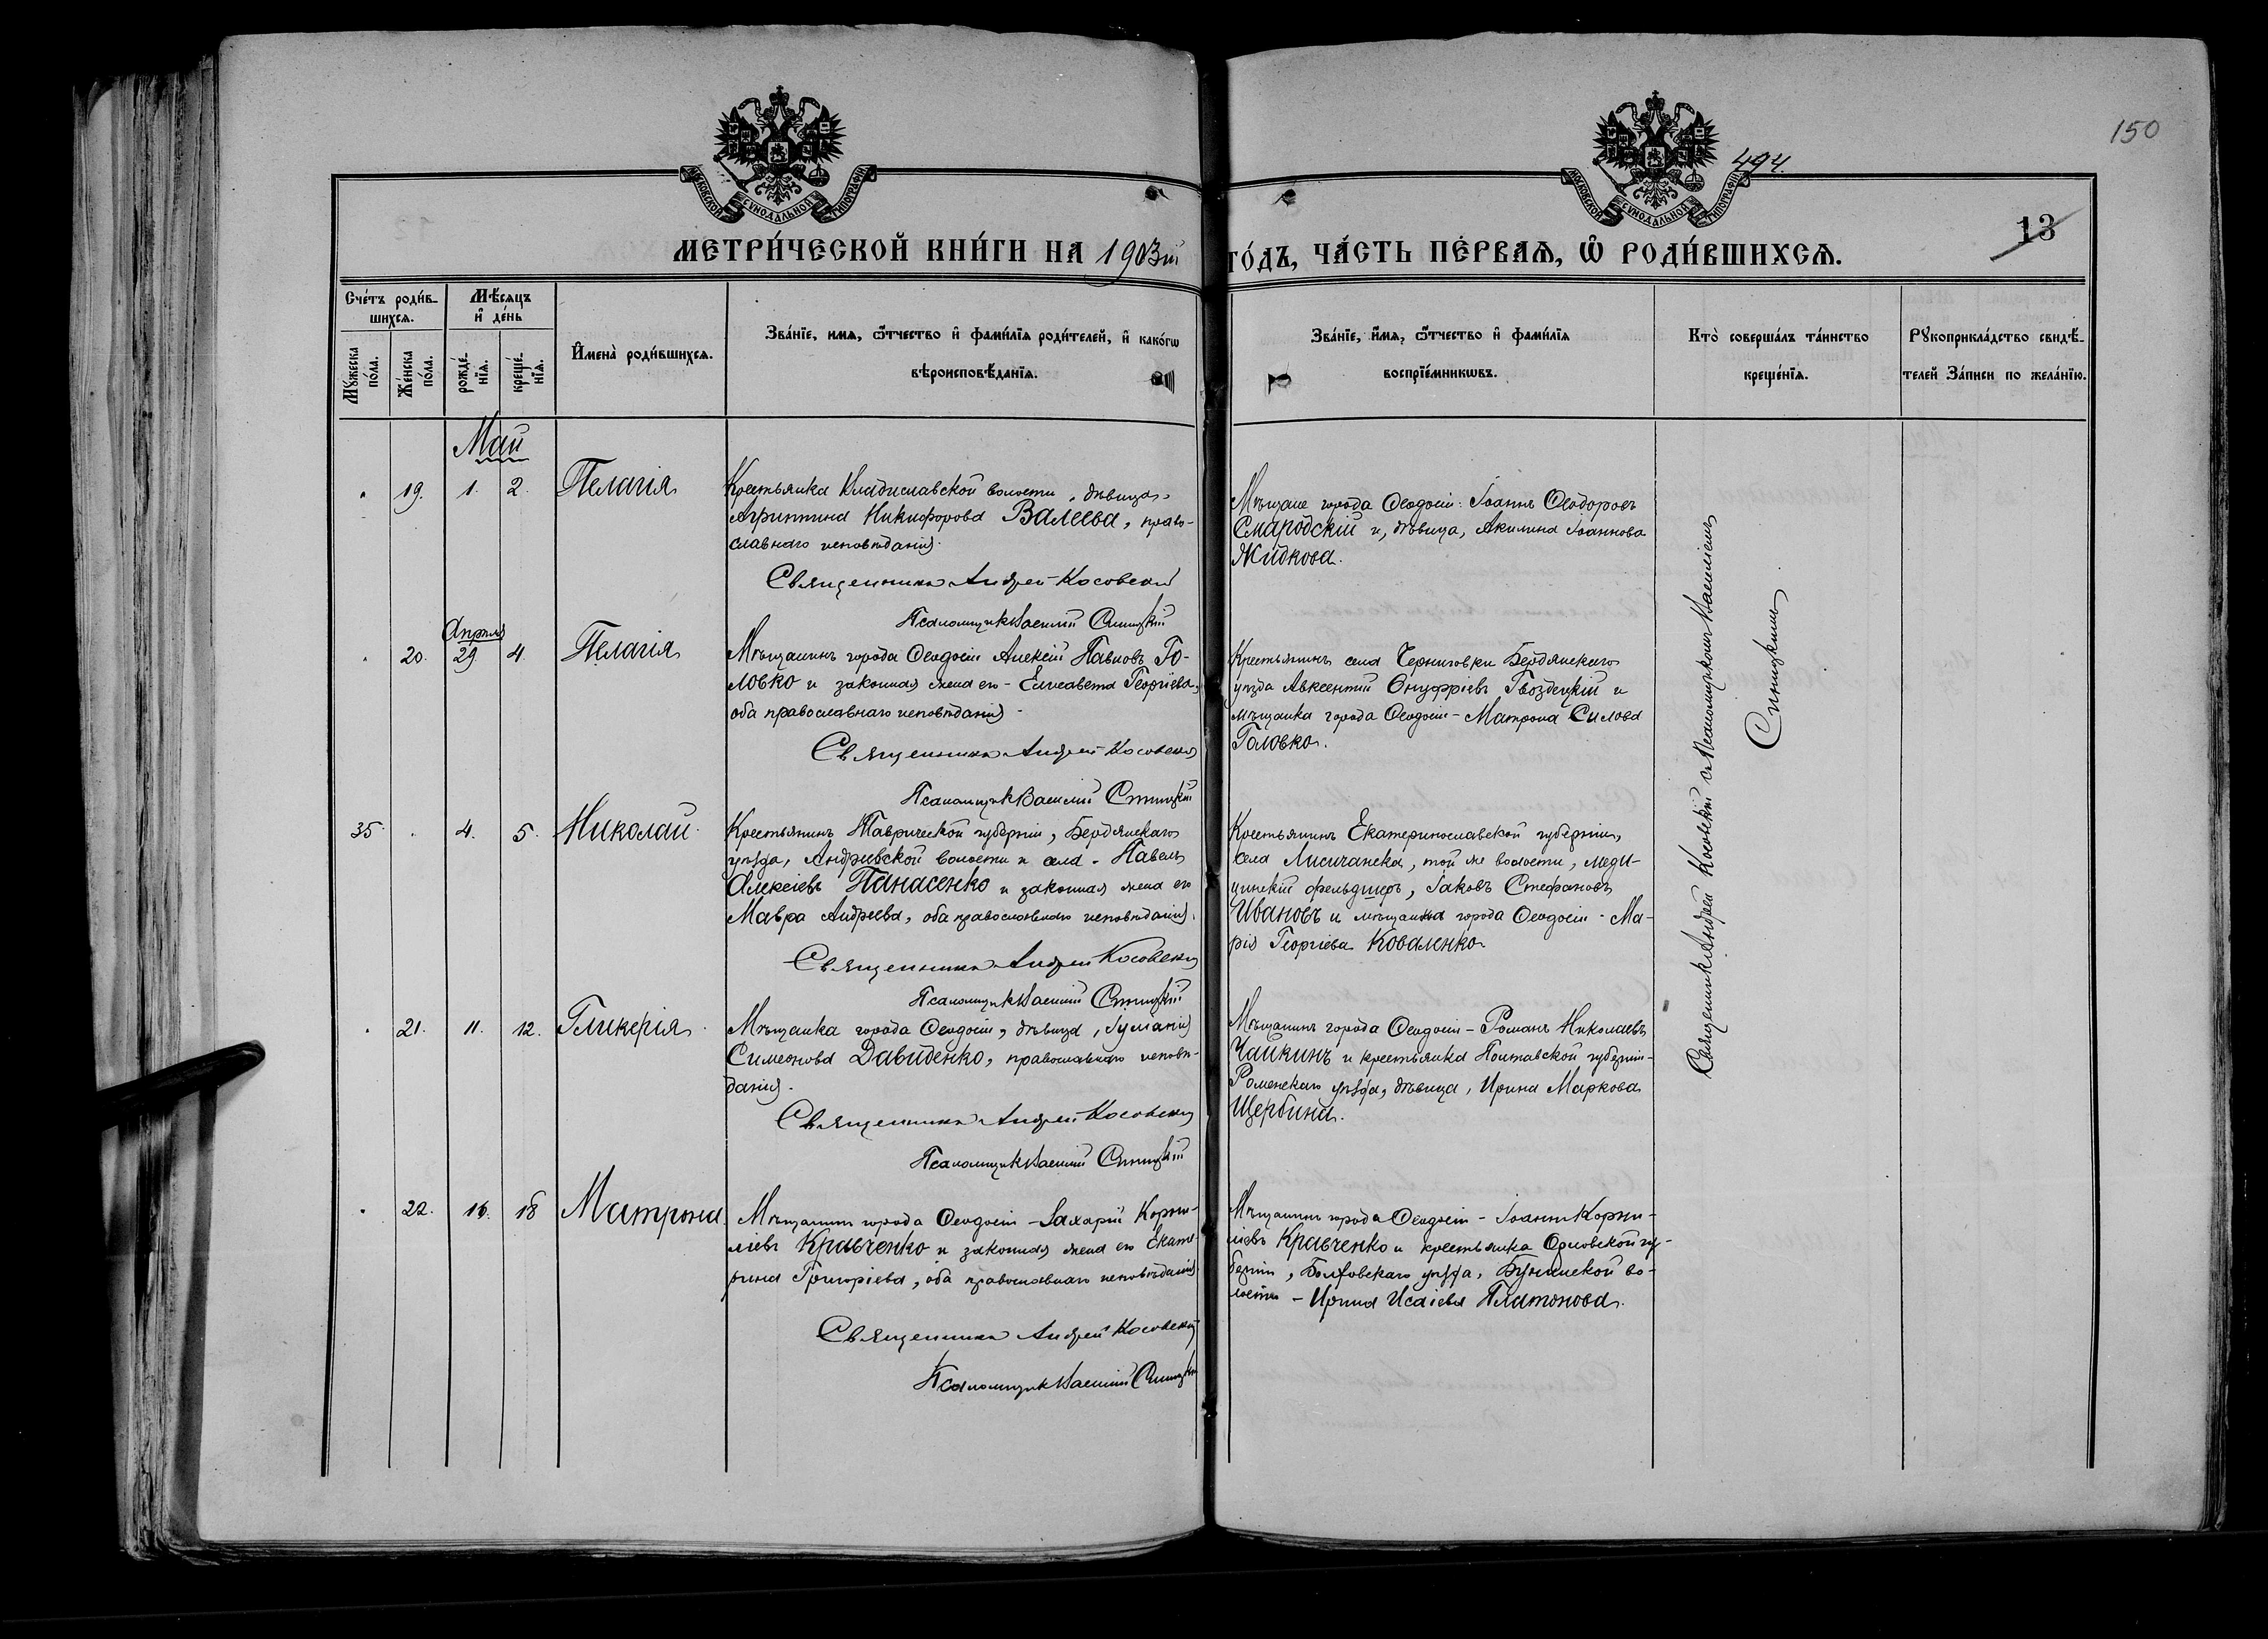 150
494.
13
МОСКОВСКОЙ СѴНОДАЛЬНОЙ ТИПОГРАФІИ
МОСКОВСКОЙ СѴНОДАЛЬНОЙ ТИПОГРАФІИ
МЕТРИ́ЧЕСКОЙ КНИ́ГИ НА 1903й ГО́ДЪ, ЧА́СТЬ ПЕ́РВАѦ, Ѡ҆ РОДИ́ВШИХСѦ.
Сче́тъ роди́в-
шихсѧ.
Мꙋ́жеска по́ла.
Же́нска по́ла.
Мѣ́сѧцъ
и҆ де́нь
рожде́-
нїѧ.
креще́-
нїѧ.
И҆мена̀ роди́вшихсѧ.
Зва́нїе, имѧ, ѻ҆́тчество и҆ фами́лїѧ роди́телей, и҆ како́гѡ
вѣроисповѣ́данїѧ.
Зва́нїе, и҆́мѧ, ѻ҆́тчество и҆ фами́лїѧ
воспрїе́мникѡвъ.
Кто̀ соверша́лъ та́инство
креще́нїѧ.
Рꙋкоприкла́дство свидѣ́-
телей За́писи по жела́нїю.
Май
" 19. 1. 2. Пелагія
Крестьянка Владиславской волости, дѣвица,
Агриппина Никифорова Валеева, право-
славнаго исповѣданія.
Священникъ Андрей Косовскій
Псаломщикъ Василий Синицкій
Мѣщане города Ѳеодосіи: Іоаннъ Ѳеодоровъ
Смародскій и, дѣвица, Акилина Іоаннова
Жидкова.
Апрѣля
" 20. 29. 4. Пелагія
Мѣщанинъ города Ѳеодосіи Алексій Павловъ Го-
ловко и законная жена его - Елисавета Георгіева,
оба православнаго исповѣданія.
Священникъ Андрей Косовскій
Псаломщикъ Василий Синицкій
Крестьянинъ села Черниговки Бердянскаго
уѣзда Авксентий Онуфріевъ Гвоздецкій и
мѣщанка города Ѳеодосіи - Матрона Силова
Головко.
35. " 4. 5. Николай
Крестьянинъ Таврической губерніи, Бердянскаго
уѣзда, Андреевской волости и села - Павелъ
Алексіевъ Панасенко и законная жена его
Мавра Андреева, оба православнаго исповѣданія.
Священникъ Андрей Косовскій
Псаломщикъ Василий Синицкій
Крестьянинъ Екатеринославской губерніи,
села Лисичанска, той же волости, меди-
цинскій фельдшеръ, Іаковъ Стефановъ
Ивановъ и мѣщанка города Ѳеодосіи - Ма-
рія Георгіева Коваленко
" 21. 11. 12. Гликерія
Мѣщанка города Ѳеодосіи, дѣвица, Іуліанія
Симеонова Давиденко, православнаго исповѣ-
данія.
Священникъ Андрей Косовскій
Псаломщикъ Василий Синицкій
Мѣщанинъ города Ѳеодосіи - Романъ Николаевъ
Чайкинъ и крестьянка Полтавской губерніи -
Роменскаго уѣзда, дѣвица, Ирина Маркова
Щербина.
" 22. 16. 18 Матрона
Мѣщанинъ города Ѳеодосіи - Захарій Корни-
ліевъ Кравченко и законная жена его Екате-
рина Григоріева, оба православнаго исповѣданія
Священникъ Андрей Косовскій
Псаломщикъ Василий Синицкій
Мѣщанинъ города Ѳеодосіи - Іоаннъ Корни-
ліевъ Кравченко и крестьянка Орловской гу-
берніи, Болховскаго уѣзда, во-
лости - Ирина Исаіева Платонова.
Священникъ Андрей Косовскій съ Псаломщикомъ Василіемъ
Синицкимъ